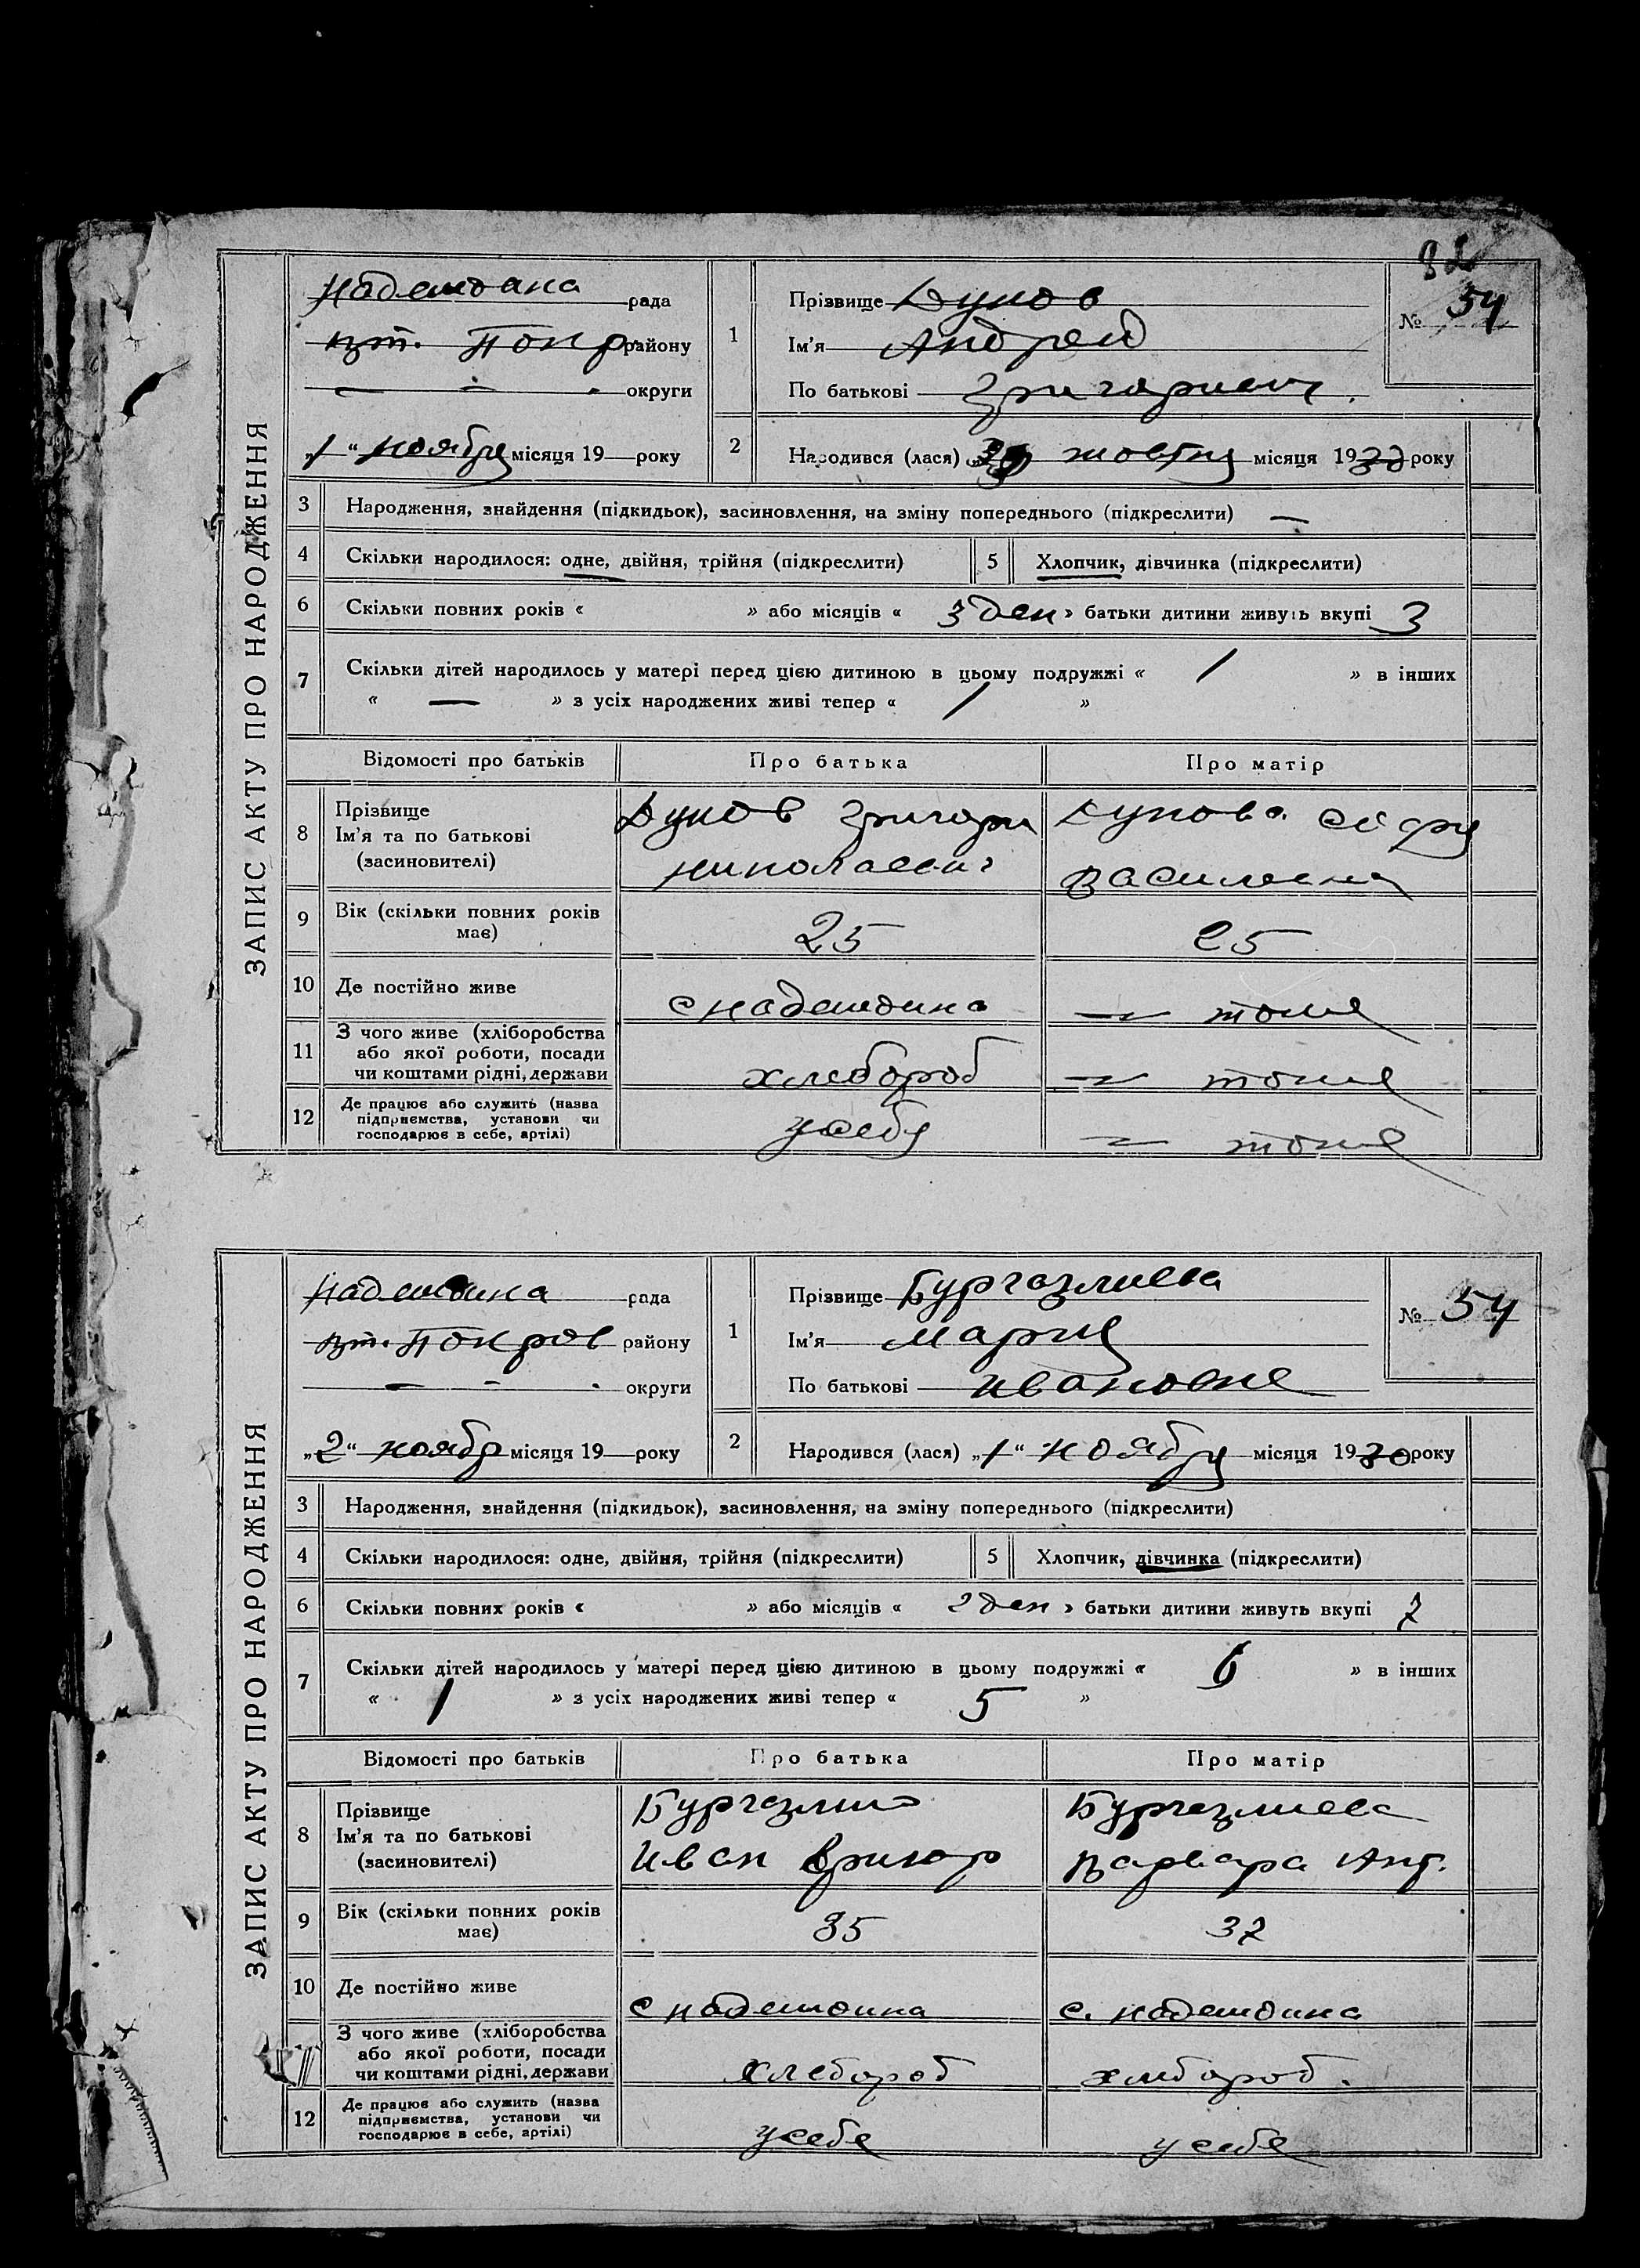 82
ЗАПИС АКТУ ПРО НАРОДЖЕННЯ
Надеждина рада
Покр району
округи
„1“ ноября місяця 19 року
1
Прізвище Дуков
Ім'я Андрей
По батькові Григориевич
№ 54
2
Народився (лася) жовтня місяця 1930 року
3 Народження, знайдення (підкидьок), засиновлення, на зміну попереднього (підкреслити) —
4 Скільки народилося: одне, двійня, трійня (підкреслити)
5 Хлопчик, дівчинка (підкреслити)
6 Скільки повних років « » або місяців « 3 ден » батьки дитини живуть вкупі 3
7 Скільки дітей народилось у матері перед цією дитиною в цьому подружжі « 1 » в інших
« — » з усіх народжених живі тепер « 1 »
Відомості про батьків Про батька Про матір
8 Прізвище
Ім'я та по батькові
(засиновителі)
Дуков Григори
Николаевич
Дукова
Василевна
9 Вік (скільки повних років
має)
25
25
10 Де постійно живе
с Надеждина
тоже
11 З чого живе (хліборобства
або якої роботи, посади
чи коштами рідні, держави
хлебороб
тоже
12 Де працює або служить (назва
підприємства, установи чи
господарює в себе, артілі)
у себя
тоже
ЗАПИС АКТУ ПРО НАРОДЖЕННЯ
Надеждина рада
Покров району
округи
„2“ ноябр місяця 19 року
1
Прізвище Бургазлиева
Ім'я Мария
По батькові Ивановне
№ 54
2
Народився (лася) „1“ ноября місяця 1930 року
3 Народження, знайдення (підкидьок), засиновлення, на зміну попереднього (підкреслити)
4 Скільки народилося: одне, двійня, трійня (підкреслити)
5 Хлопчик, дівчинка (підкреслити)
6 Скільки повних років « » або місяців « 2 ден » батьки дитини живуть вкупі 7
7 Скільки дітей народилось у матері перед цією дитиною в цьому подружжі « 6 » в інших
« 1 » з усіх народжених живі тепер « 5 »
Відомості про батьків Про батька Про матір
8 Прізвище
Ім'я та по батькові
(засиновителі)
Иван Григор
Бургазлиева
Варвара Ант.
9 Вік (скільки повних років
має)
35
37
10 Де постійно живе
с Надеждина
с. Надеждина
З чого живе (хліборобства
або якої роботи, посади
чи коштами рідні, держави
хлебороб
хлебороб.
12 Де працює або служить (назва
підприємства, установи чи
господарює в себе, артілі)
у себе
у себе